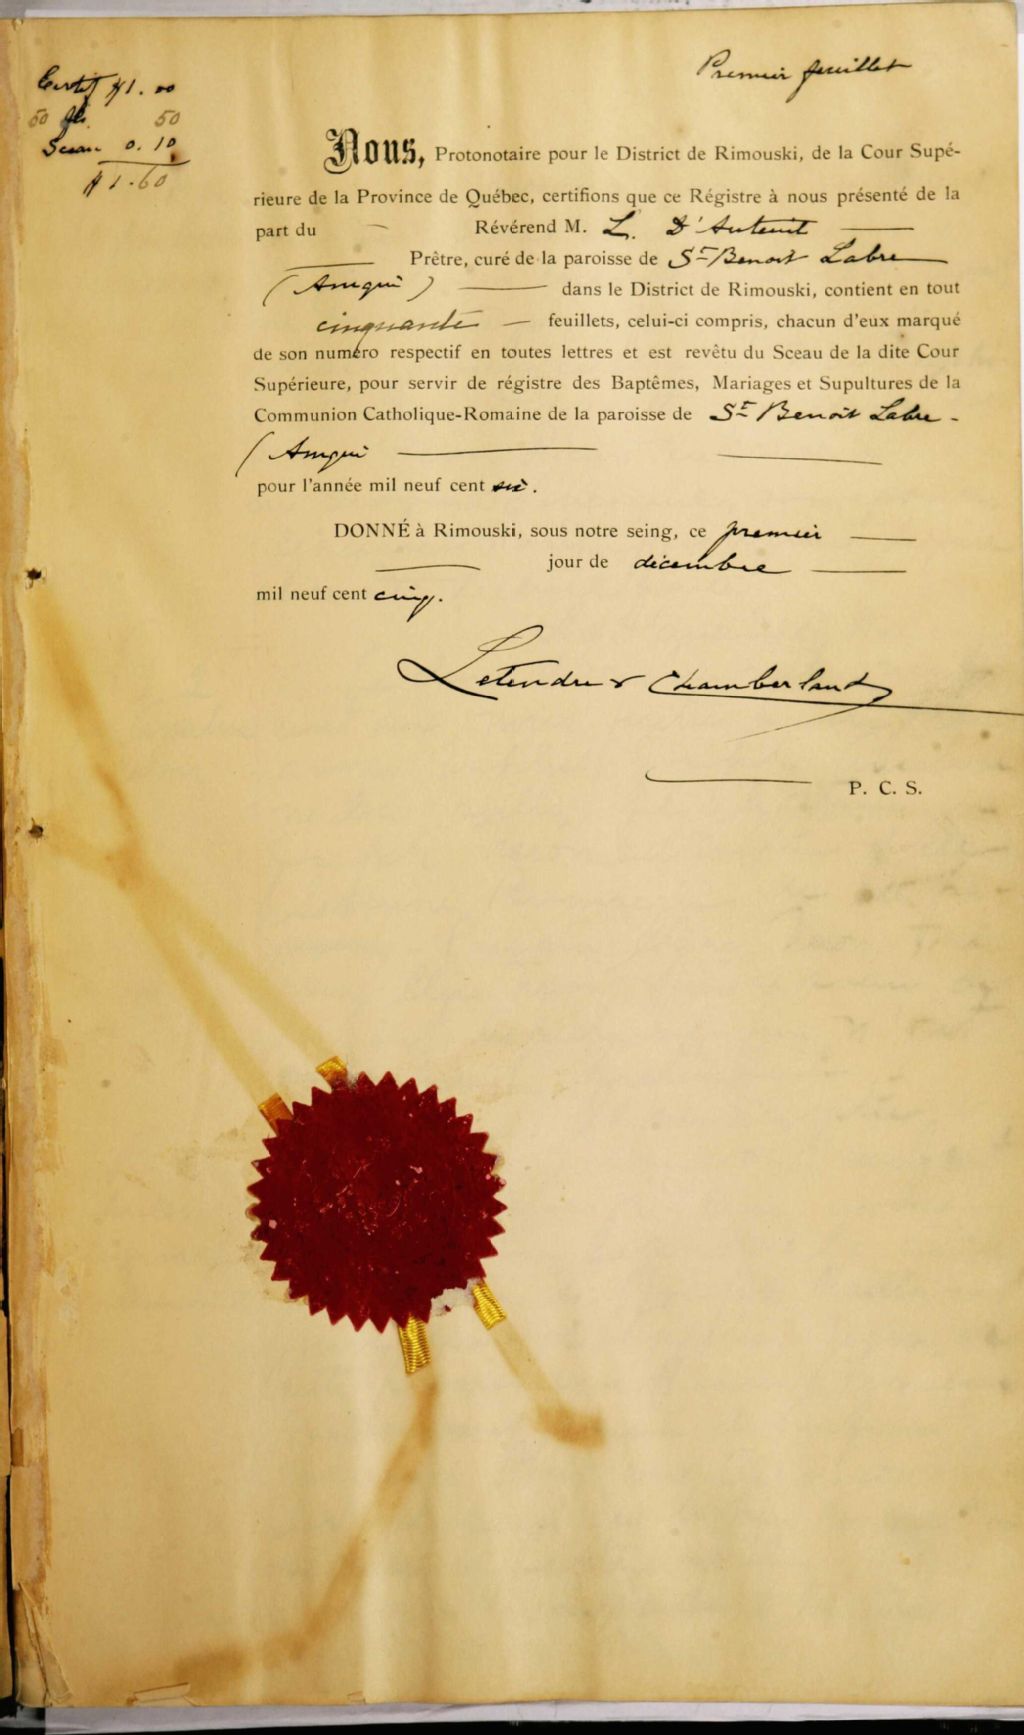 Premier feuillet
Certif $1.00
50 fls. 50
Sceau 0.10
$1.60
Nous, Protonotaire pour le District de Rimouski, de la Cour Supé-
rieure de la Province de Québec, certifions que ce Régistre à nous présenté de la
part du Révérend M. L. D'Auteuil
Prêtre, curé de la paroisse de St Benoit Labre
(Amqui) dans le District de Rimouski, contient en tout
cinquante feuillets, celui-ci compris, chacun d'eux marqué
de son numéro respectif en toutes lettres et est revêtu du Sceau de la dite Cour
Supérieure, pour servir de régistre des Baptêmes, Mariages et Supultures de la
Communion Catholique-Romaine de la paroisse de St Benoit Labre -
(Amqui
pour l'année mil neuf cent six.
DONNÉ à Rimouski, sous notre seing, ce premier
jour de décembre
mil neuf cent cinq.
Letendre & Chamberland
P. C. S.